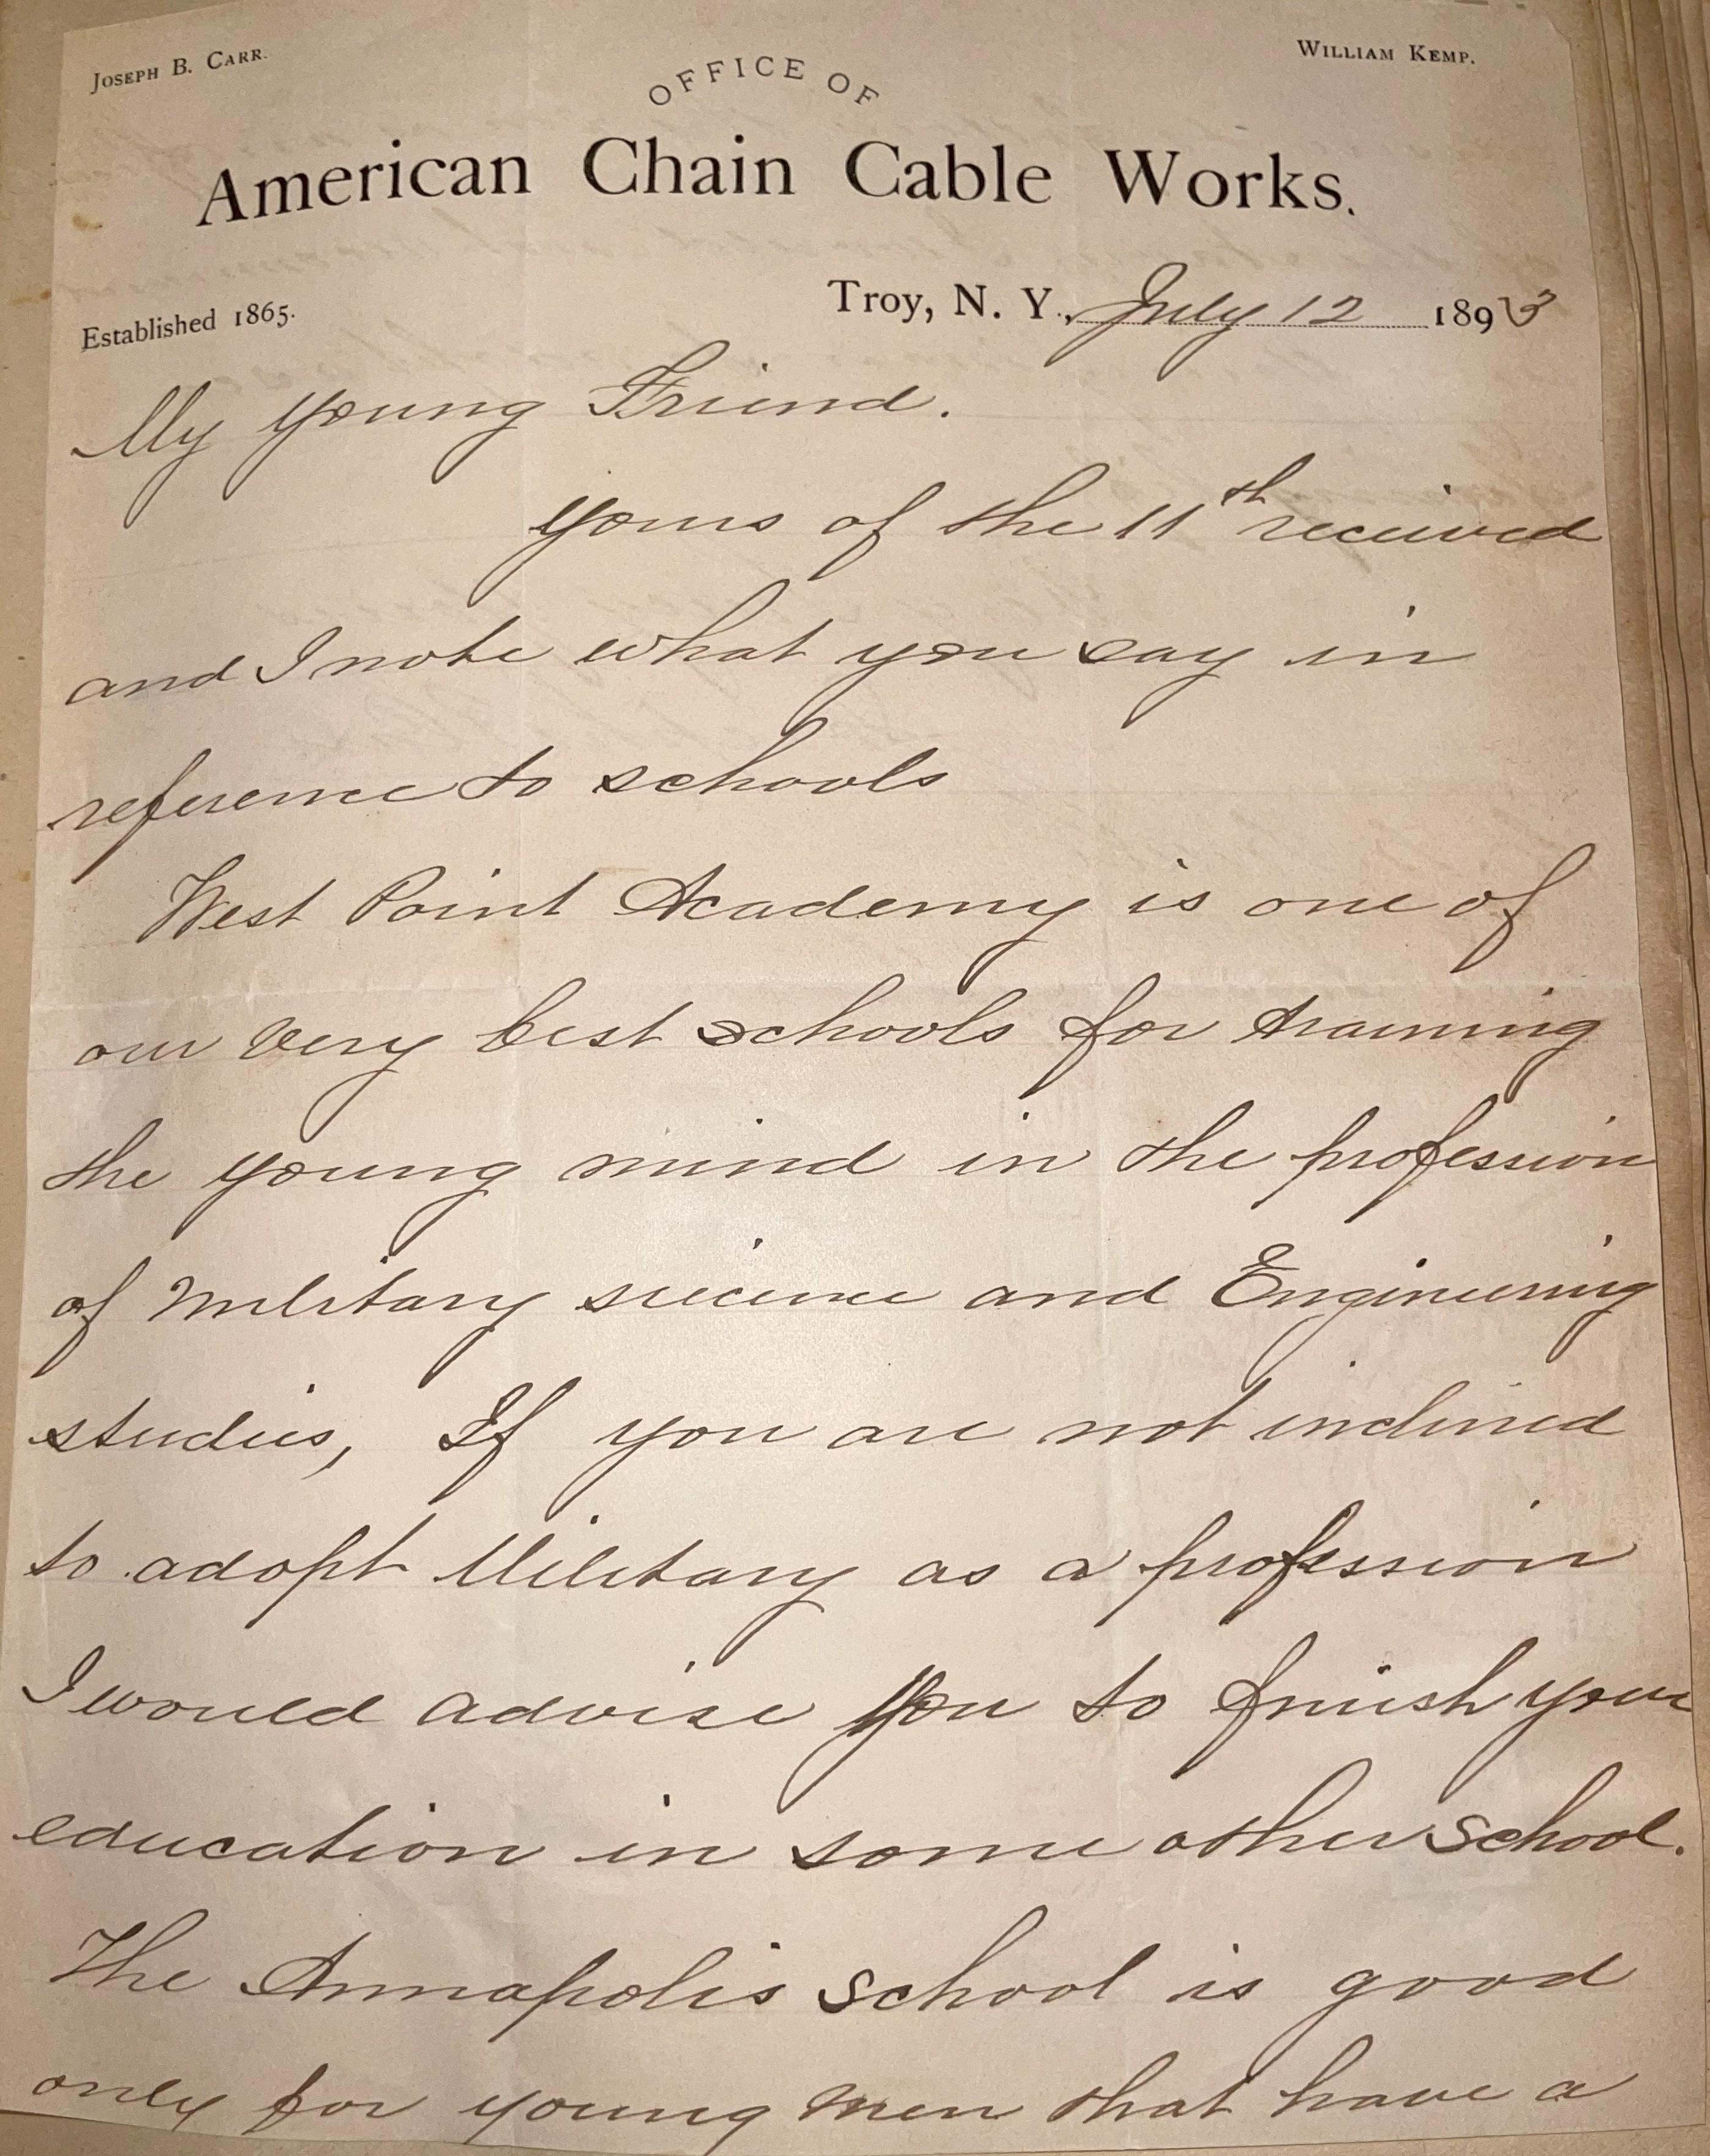 Joseph B. Carr.
William Kemp.
OFFICE OF
American Chain Cable Works.
Established 1865.
Troy, N. Y., July 12 1893
My young Friend.
yours of the 11th received
and I note what you say in
reference to schools
West Point Academy is one of
our very best schools for training
the young mind in the profession
of Military science and Engineering
studies, If you are not inclined
to adopt Military as a profession
I would advise you to finish your
education in some other School.
The Annapolis School is good
only for young men that have a